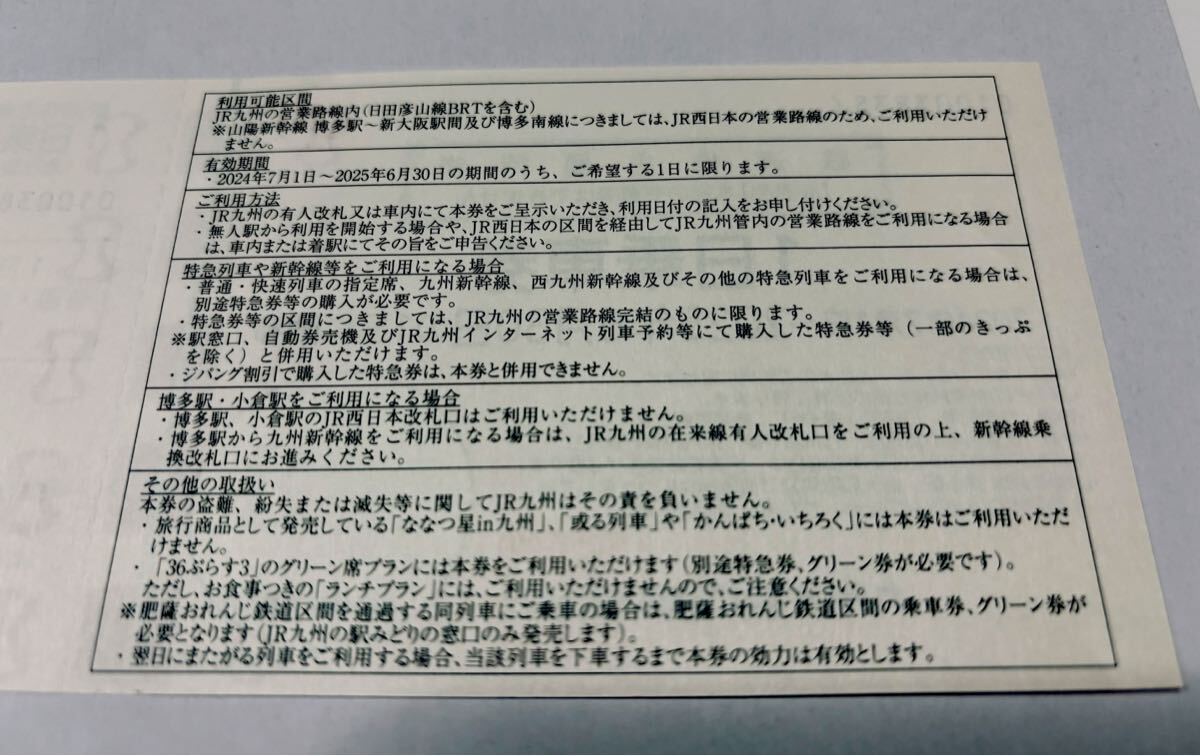 利用可能区間
JR九州の営業路線内(日田彦山線BRTを含む)
※山陽新幹線 博多駅～新大阪駅間及び博多南線につきましては、JR西日本の営業路線のため、ご利用いただけ
ません。
有効期間
・2024年7月1日～2025年6月30日の期間のうち、ご希望する1日に限ります。
ご利用方法
・JR九州の有人改札又は車内にて本券をご呈示いただき、利用日付の記入をお申し付けください。
・無人駅から利用を開始する場合や、JR西日本の区間を経由してJR九州管内の営業路線をご利用になる場合
は、車内または着駅にてその旨をご申告ください。
特急列車や新幹線等をご利用になる場合
・普通・快速列車の指定席、九州新幹線、西九州新幹線及びその他の特急列車をご利用になる場合は、
別途特急券等の購入が必要です。
・特急券等の区間につきましては、JR九州の営業路線完結のものに限ります。
※駅窓口、自動券売機及びJR九州インターネット列車予約等にて購入した特急券等（一部のきっぷ
を除く）と併用いただけます。
・ジパング割引で購入した特急券は、本券と併用できません。
博多駅・小倉駅をご利用になる場合
・博多駅、小倉駅のJR西日本改札口はご利用いただけません。
・博多駅から九州新幹線をご利用になる場合は、JR九州の在来線有人改札口をご利用の上、新幹線乗
換改札口にお進みください。
その他の取扱い
本券の盗難、紛失または滅失等に関してJR九州はその責を負いません。
・旅行商品として発売している「ななつ星in九州」、「或る列車」や「かんぱち・いちろく」には本券はご利用いただ
けません。
・「36ぷらす3」のグリーン席プランには本券をご利用いただけます(別途特急券、グリーン券が必要です)。
ただし、お食事つきの「ランチプラン」には、ご利用いただけませんので、ご注意ください。
※肥薩おれんじ鉄道区間を通過する同列車にご乗車の場合は、肥薩おれんじ鉄道区間の乗車券、グリーン券が
必要となります(JR九州の駅みどりの窓口のみ発売します)。
・翌日にまたがる列車をご利用する場合、当該列車を下車するまで本券の効力は有効とします。